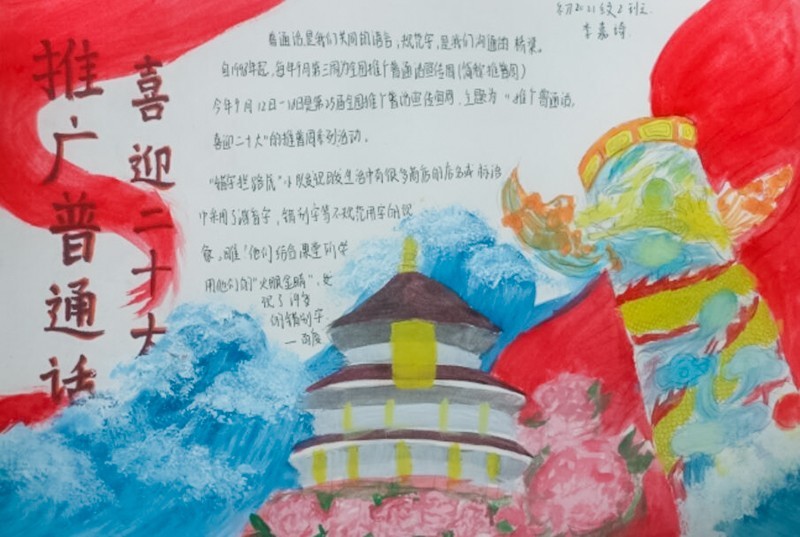 推广普通话
喜迎二十大
初2021级2班
李嘉琦
普通话是我们共同的语言,规范字,是我们沟通的桥梁。
自1998年起,每年9月第三周为全国推广普通话宣传周(简称推普周)
今年9月12日-18日是第25届全国推广普通话宣传周,主题为“推广普通话,
喜迎二十大”的推普周系列活动。
“错字拦路虎”小以发现日常生活中有很多商店的店名或标语
中采用了谐音字,错别字等不规范用字的现
象,他们结合课堂所学
用他们的“火眼金睛”,
识了
的错别字